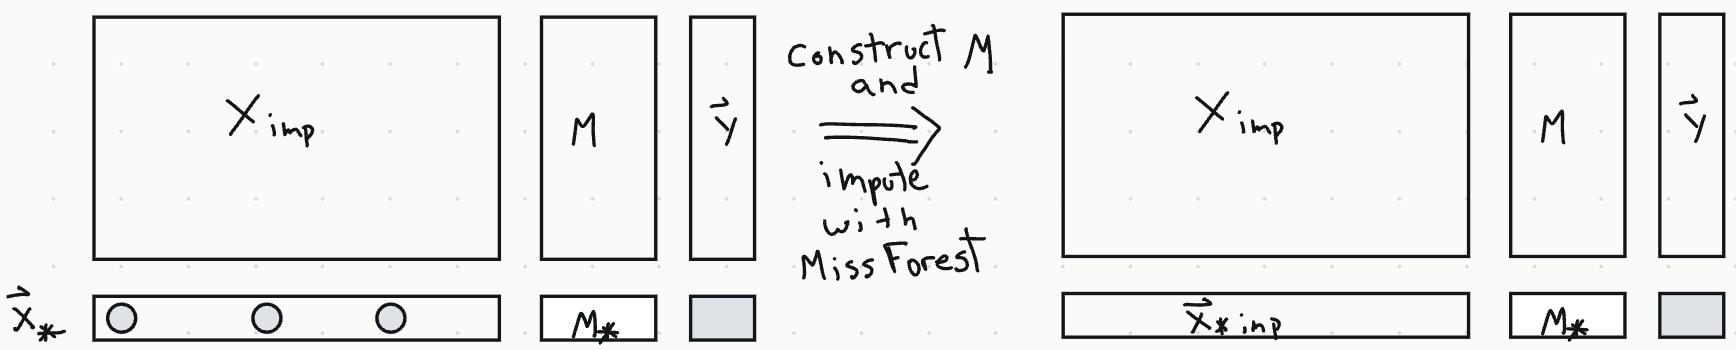 X imp
M
y
Construct M
and
impute
with
MissForest
X imp
M
y
x*
M*
x* imp
M*